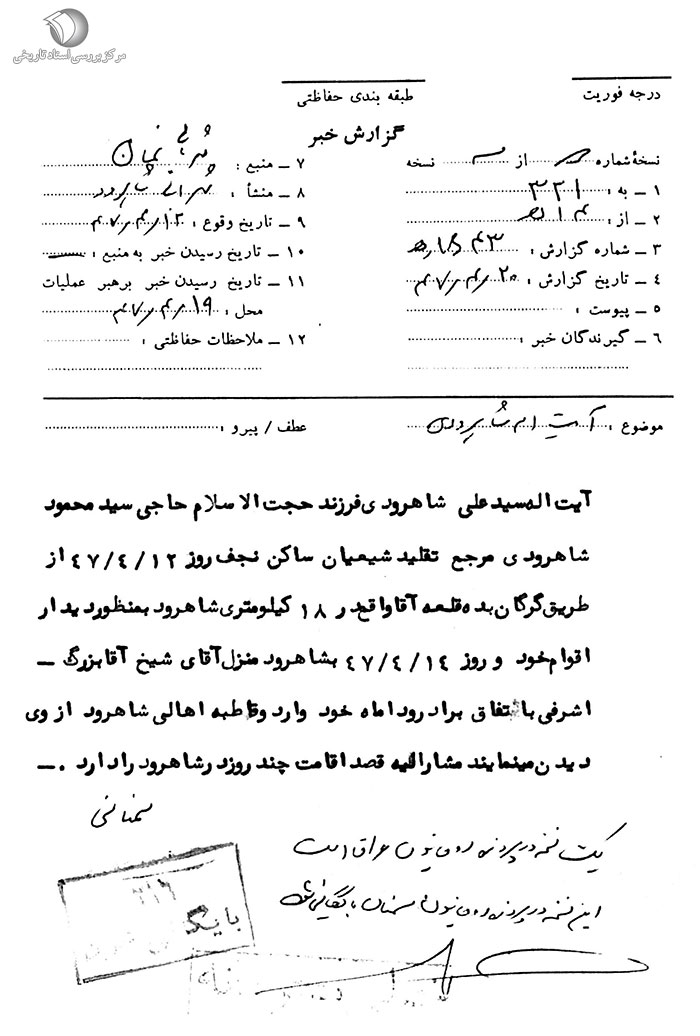 مرکز بررسی اسناد تاریخی
درجه فوریت
طبقه بندی حفاظتی
گزارش خبر
نسخهٔ شماره از نسخه
۱ ـ به : ۳۲۱
۲ ـ از :
۳ ـ شماره گزارش :
۴ ـ تاریخ گزارش : ۲۰ر۴ر۴۷
۵ ـ پیوست :
۶ ـ گیرندگان خبر :
۷ ـ منبع :
۸ ـ منشأ :
۹ ـ تاریخ وقوع : ۱۲ر۴ر۴۷
۱۰ ـ تاریخ رسیدن خبر به منبع :
۱۱ ـ تاریخ رسیدن خبر برهبر عملیات
محل : ۱۹ر۴ر۴۷
۱۲ ـ ملاحظات حفاظتی :
موضوع : آیت اله شاهرودی
عطف / پیرو :
آیت اله سید علی شاهرودی فرزند حجت الاسلام حاجی سید محمود
شاهرودی مرجع تقلید شیعیان ساکن نجف روز ۴۷/۴/۱۲ از
طریق گرگان بده قلعه آقا واقع در ۱۸ کیلومتری شاهرود بمنظور دیدار
اقوام خود و روز ۴۷/۴/۱۴ بشاهرود منزل آقای شیخ آقابزرگ ـ
اشرفی باتفاق برادر و داماد خود وارد و قاطبه اهالی شاهرود از وی
دیدن مینمایند مشارالیه قصد اقامت چند روز در شاهرود را دارد .ـ
سمنانی
یک نسخه در پرونده روحانیون عراق است
این نسخه در پرونده روحانیون سمنان بایگانی شود
۳۱۶